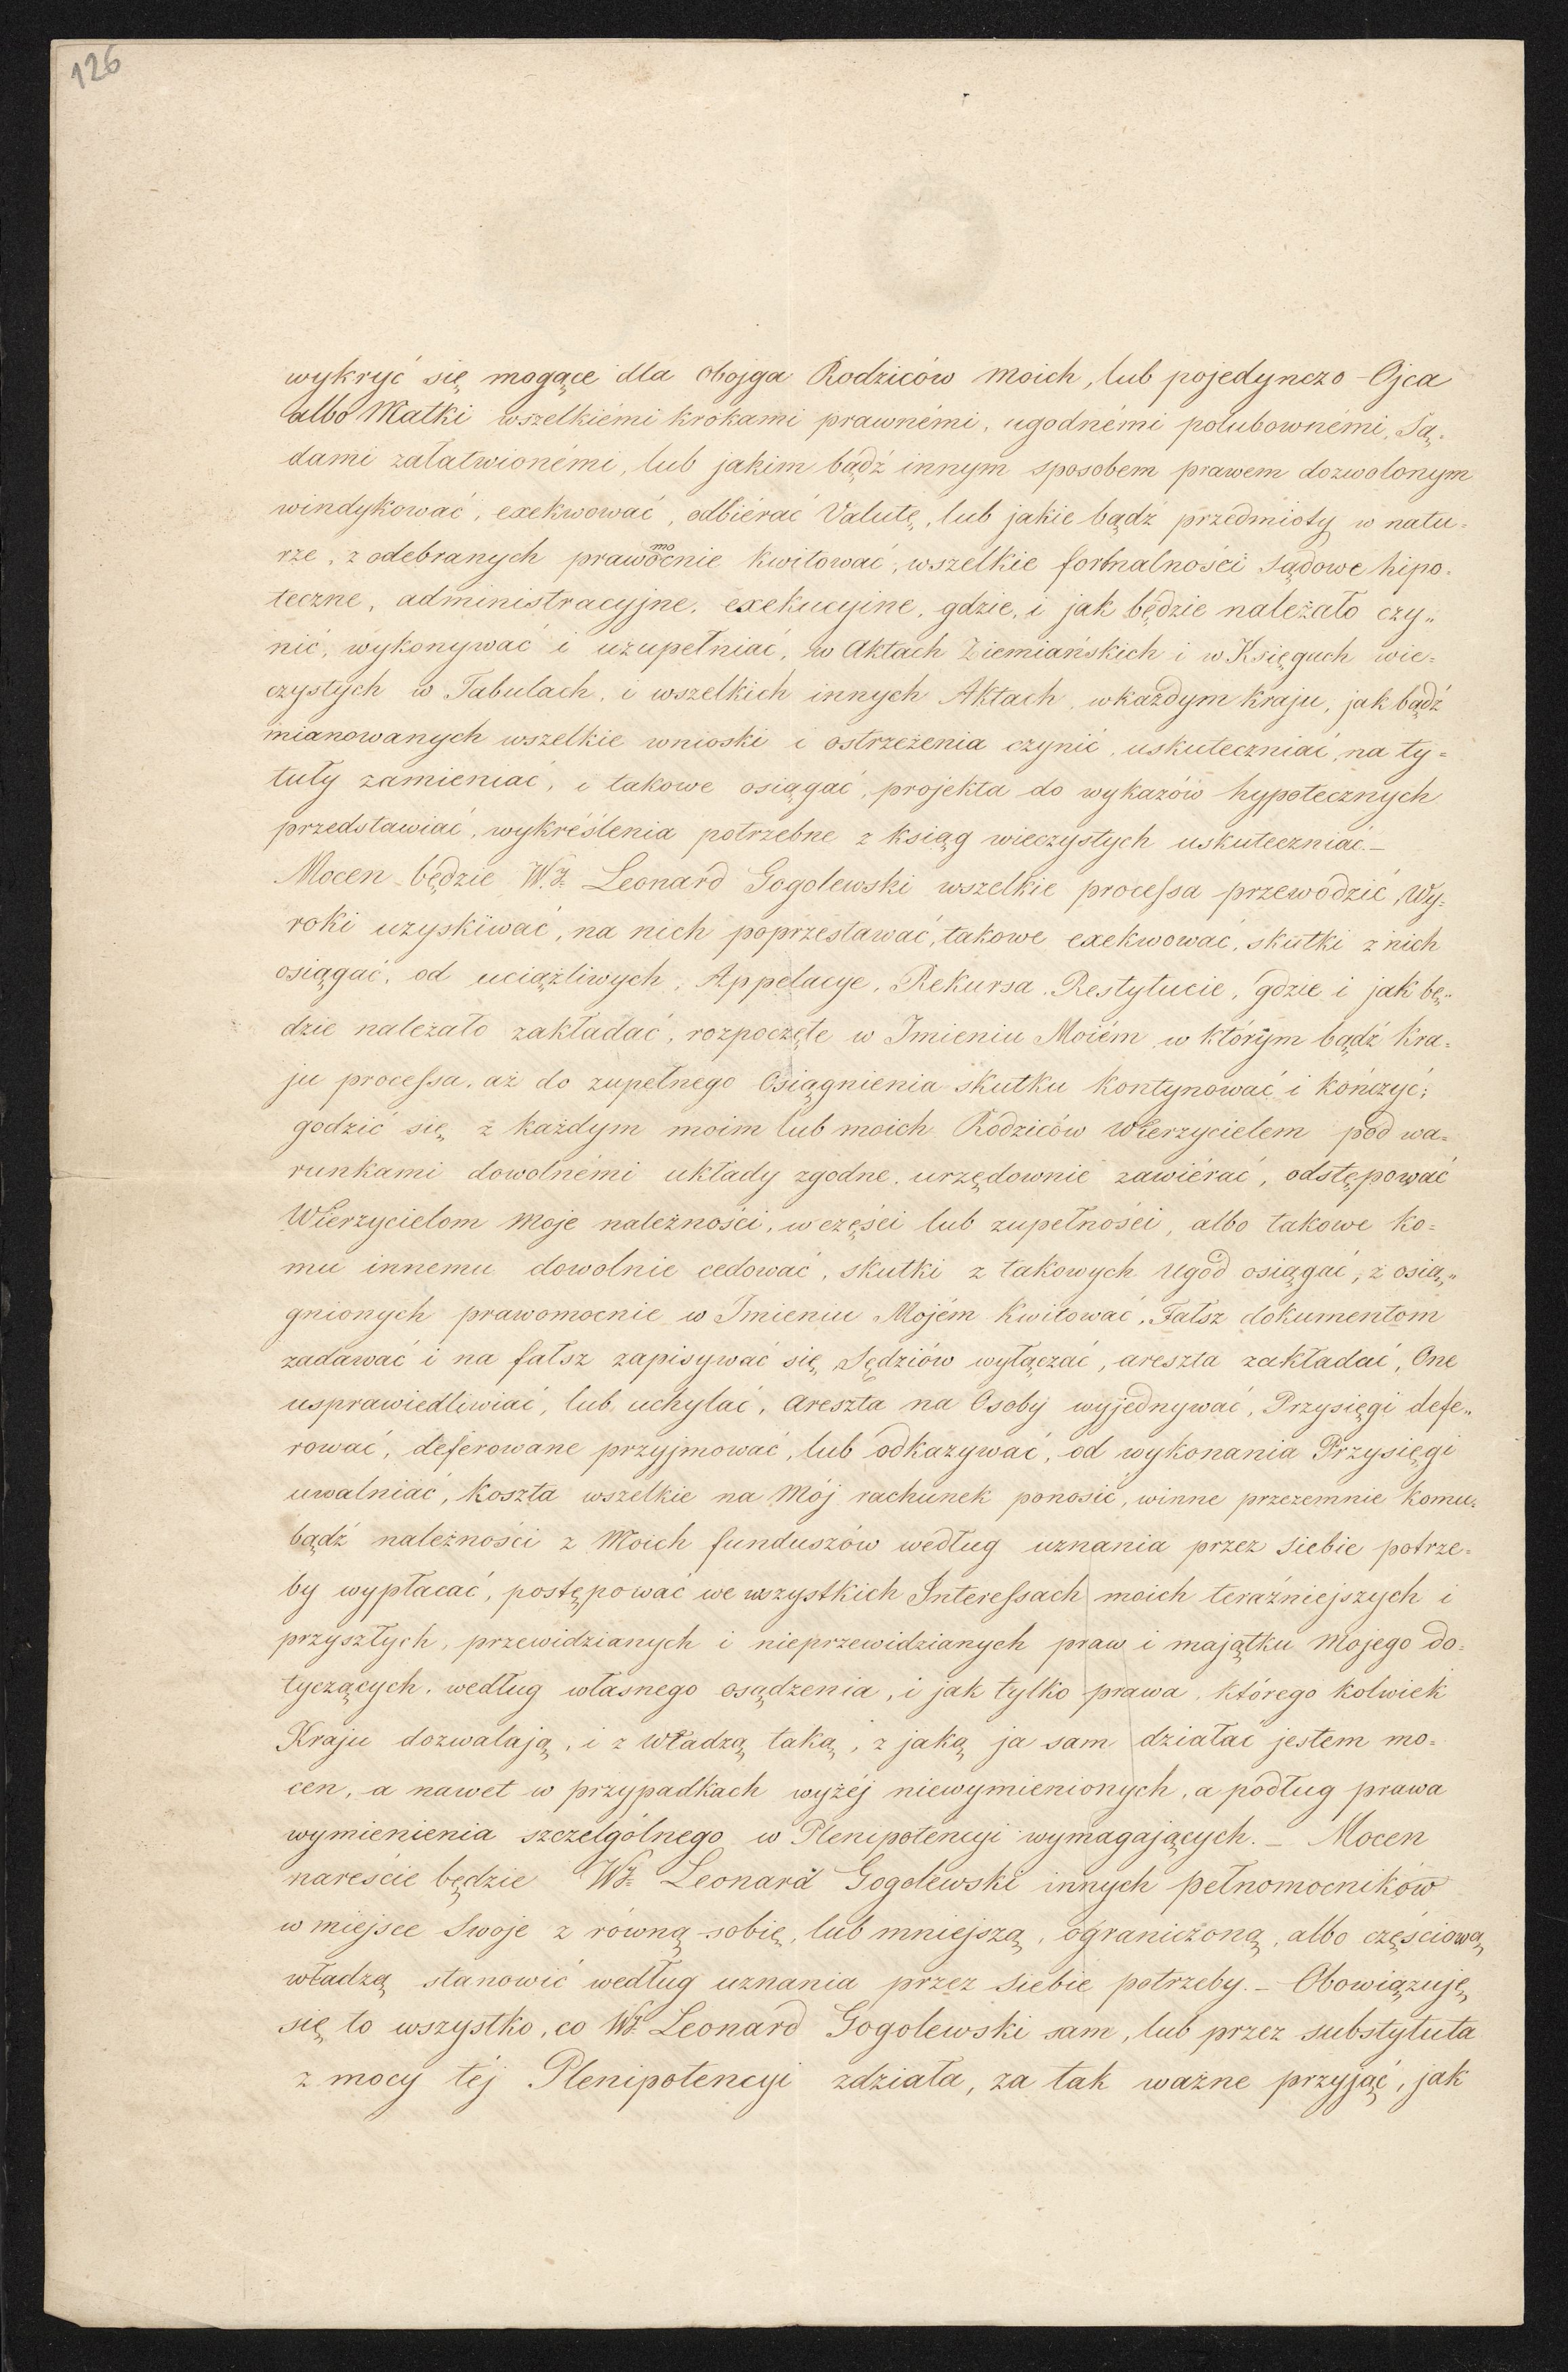 126
wykryć się mogące dla obojga Rodziców moich, lub pojedynczo Ojca
albo Matki wszelkiémi krokami prawnémi, ugodnémi polubownémi, Są-
dami załatwionémi, lub jakim bądź innym sposobem prawem dozwolonym
windykować, exekwować, odbiérać Valutę, lub jakie bądź przedmioty w natu-
rze, z odebranych prawomocnie kwitować, wszelkie formalności Sądowe hipo-
teczne, administracyjne, exekucyine, gdzie, i jak będzie należało czy-
nić, wykonywać i uzupełniać, w Aktach Ziemiańskich i w Księgach wie-
czystych w Tabulach, i wszelkich innych Aktach, wkażdym Kraju, jak bądź
mianowanych wszelkie wnioski i ostrzeżenia czynić, uskuteczniać, na ty-
tuły zamieniać, i takowe osiągać, projekta do wykazów hypotecznych
przedstawiać, wykréślenia potrzebne z ksiąg wieczystych uskuteczniać.—
Mocen będzie W.J. Leonard Gogolewski wszelkie processa przewodzić, Wy-
roki uzyskiwać, na nich poprzestawać, takowe exekwować, skutki z nich
osiągać, od uciążliwych, Appelacye, Rekursa, Restytucie, gdzie i jak bę-
dzie należało zakładać, rozpoczęte w Imieniu Moiém w którym bądź kra-
ju processa, aż do zupełnego Osiągnienia skutku kontynować i kończyć;
godzić się z każdym moim lub moich Rodziców Wierzycielem pod wa-
runkami dowolnémi układy zgodne, urzędownie zawiérać, odstępować
Wierzycielom moje należności, w części lub zupełności, albo takowe ko-
mu innemu dowolnie cedować, skutki z takowych ugód osiągać, z osią-
gnionych prawomocnie w Imieniu Mojém kwitować, Fałsz dokumentom
zadawać i na fałsz zapisywać się, Sędziów wyłączać, areszta zakładać, One
usprawiedliwiać, lub uchylać, Areszta na Osoby wyjednywać, Przysięgi defe-
rować, deferowane przyjmować, lub odkazywać, od wykonania Przysięgi
uwalniać, koszta wszelkie na Mój rachunek ponosić, winne przezemnie komu-
bądź należności z Moich funduszów według uznania przez siebie potrze-
by wypłacać, postępować we wszystkich Interessach moich teraźniejszych i
przyszłych, przewidzianych i nieprzewidzianych praw i majątku Mojego do-
tyczących, według własnego osądzenia, i jak tylko prawa, którego kolwiek
Kraju dozwalają, i z władzą taką, z jaką ja sam działać jestem mo-
cen, a nawet w przypadkach wyżéj niewymienionych, a podług prawa
wymienienia szczelgólnego w Plenipotencyi wymagających.— Mocen
nareście będzie WJ. Leonard Gogolewski innych pełnomocników
w miejsce Swoje z równą sobie, lub mniejszą, ograniczoną, albo częściową
władzą stanowić według uznania przez siebie potrzeby.— Obowiązuję
się to wszystko, co WJ. Leonard Gogolewski sam, lub przez substytuta
z mocy téj Plenipotencyi zdziała, za tak ważne przyjąć, jak